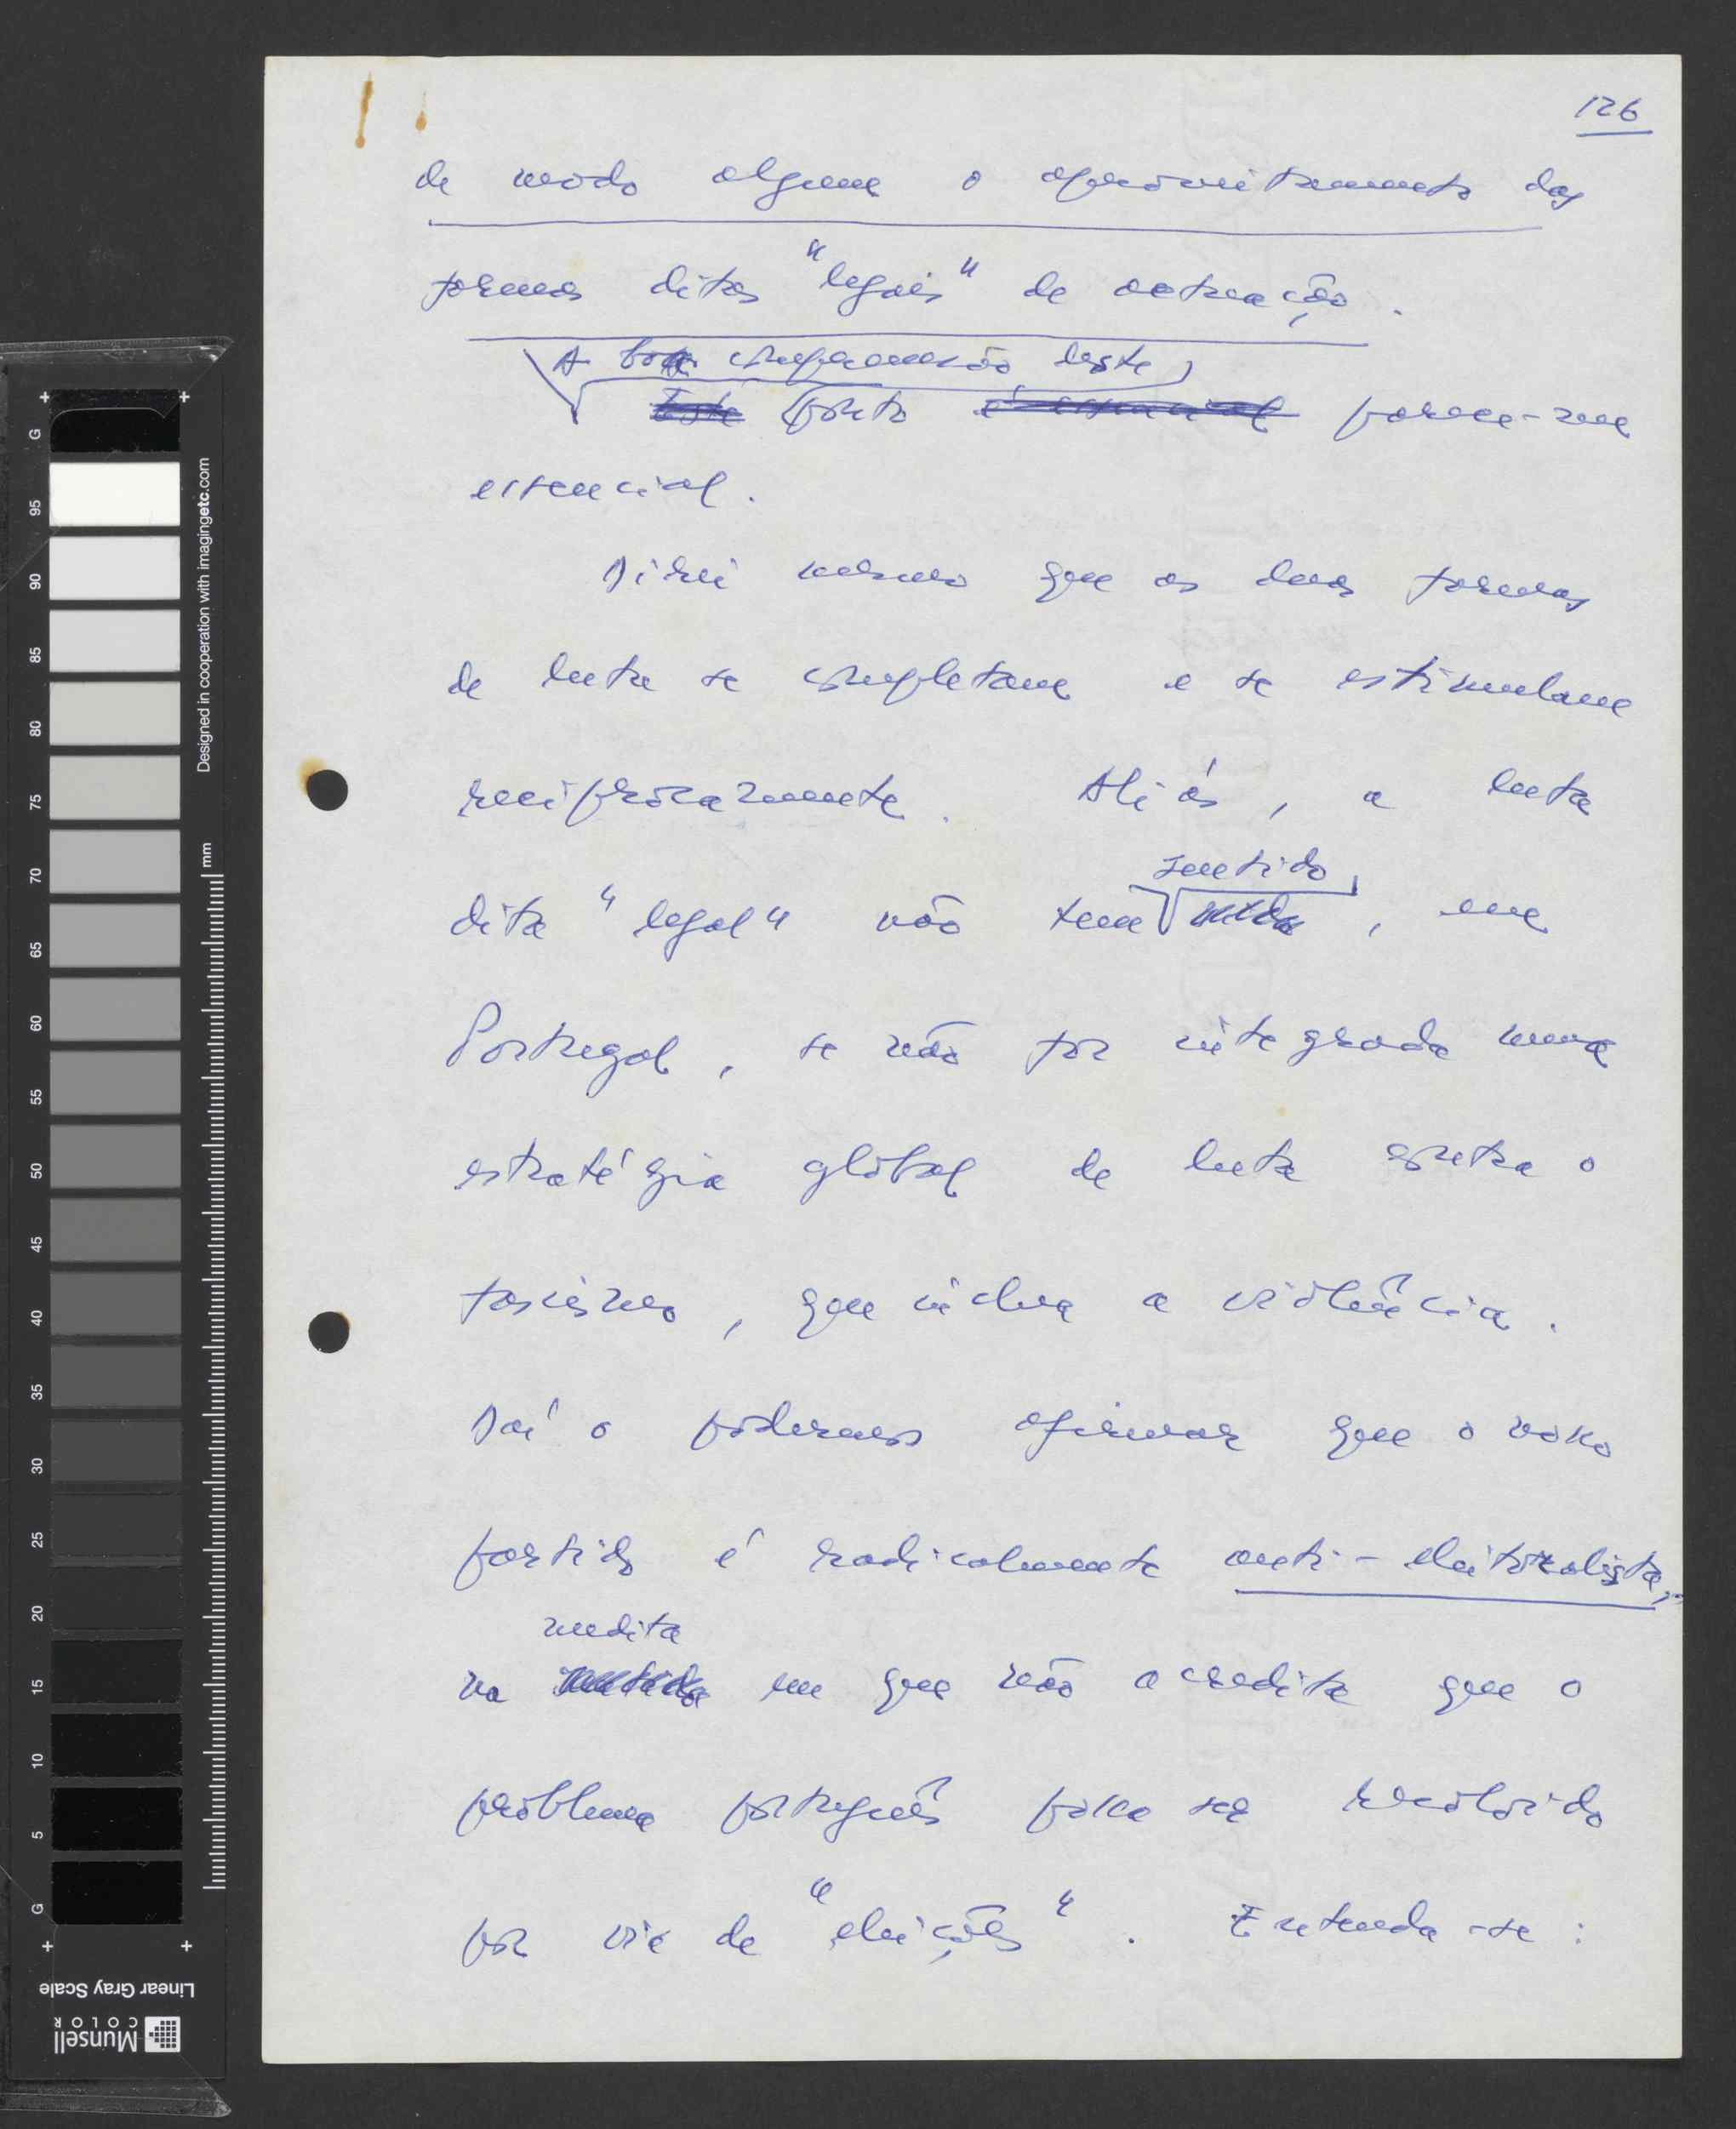 126
de modo algum o aproveitamento das
formas ditas "legais" de actuação.
A boa compreensão deste
Este ponto é essencial parece-me
essencial.
Direi mesmo que as duas formas
de luta se completam e se estimulam
reciprocamente. Aliás, a luta
sentido
dita "legal" não tem, em
Portugal, se não for integrada numa
estratégia global de luta contra o
fascismo, que inclua a violência.
Daí o podermos afirmar que o nosso
partido é radicalmente anti-eleitoralista,
medida
na em que não acredita que o
problema português possa ser resolvido
por via de "eleições". Entenda-se:
Designed in cooperation with imagingetc.com
mm
G 95 90 85 80 75 70 65 60 55 50 45 40 35 30 25 20 15 10 5 G
Linear Gray Scale
Munsell
COLOR